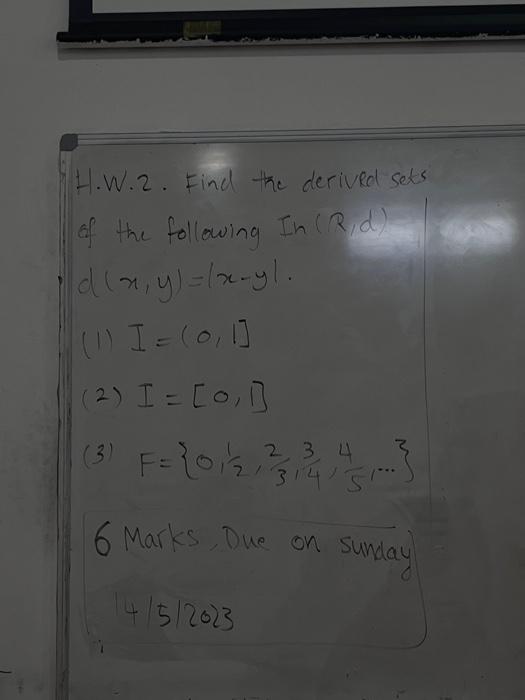 H.W.2. Find the derived sets
of the following In (R,d)
d(x,y)=|x-y|.
(1) I = (0,1]
(2) I = [0,1]
(3) F = {0, 1/2, 2/3, 3/4, 4/5, ...}
6 Marks, Due on sunday
14/5/2023